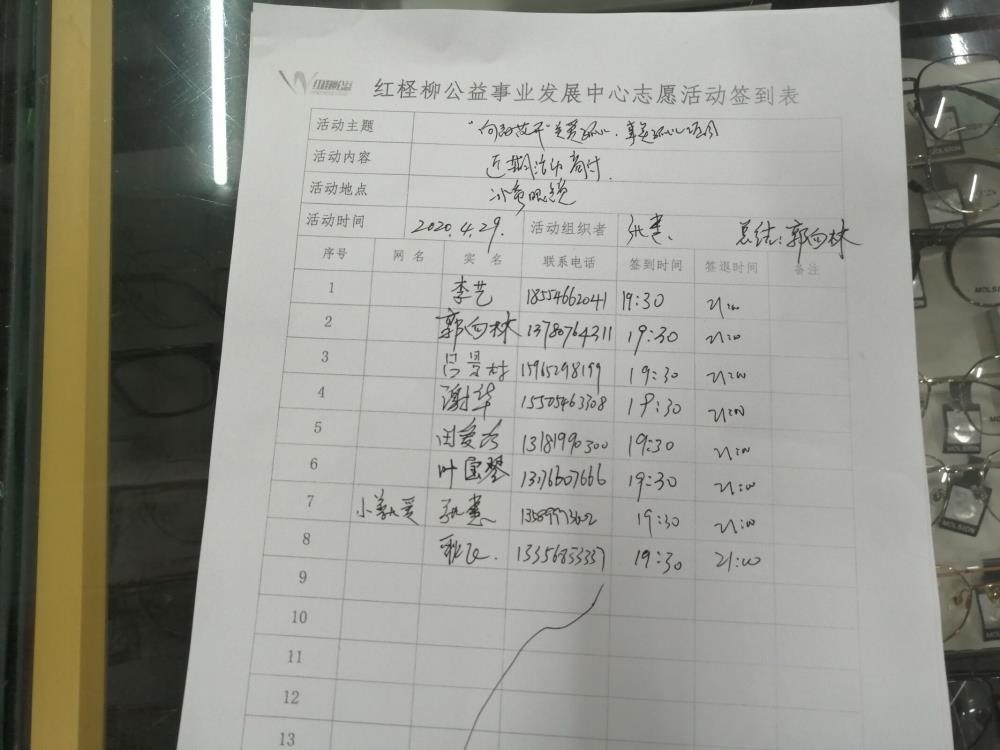 红柽柳公益
红柽柳公益事业发展中心志愿活动签到表
活动主题
活动内容 近期活动商讨.
活动地点 眼镜
活动时间 2020.4.29. 活动组织者 张惠. 总结:郭向林
序号 网名 实名 联系电话 签到时间 签退时间 备注
1 李艺 18554662041 19:30 21:00
2 郭向林 13780764311 19:30 21:00
3 吕贤村 15965298199 19:30 21:00
4 谢华 15505463308 19:30 21:00
5 田爱 13181990300 19:30 21:00
6 叶国琴 13176607666 19:30 21:00
7 张惠 19:30 21:00
8 19:30 21:00
9
10
11
12
13
MOLSION
MOLSION
MOLSION
MOLSION